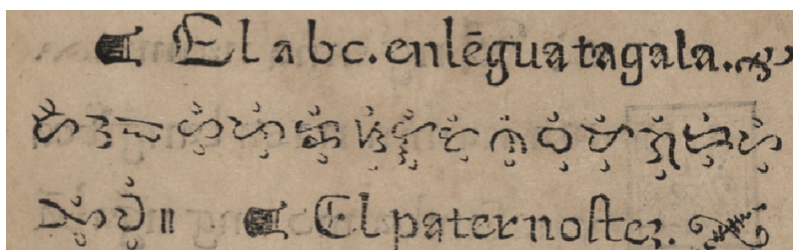 ☙ El abc. en lēgua tagala.
ᜀ ᜂ ᜁ ᜑᜒᜓ ᜉᜒᜓ ᜃᜒᜓ ᜐᜒᜓ ᜎᜒᜓ ᜆᜒᜓ ᜈᜒᜓ ᜊᜒᜓ ᜋᜒᜓ ᜄᜒᜓ ᜇᜒᜓ ᜌᜒᜓ
ᜅᜒᜓ ᜏᜒᜓ ᜶ ☙ El pater noſter.